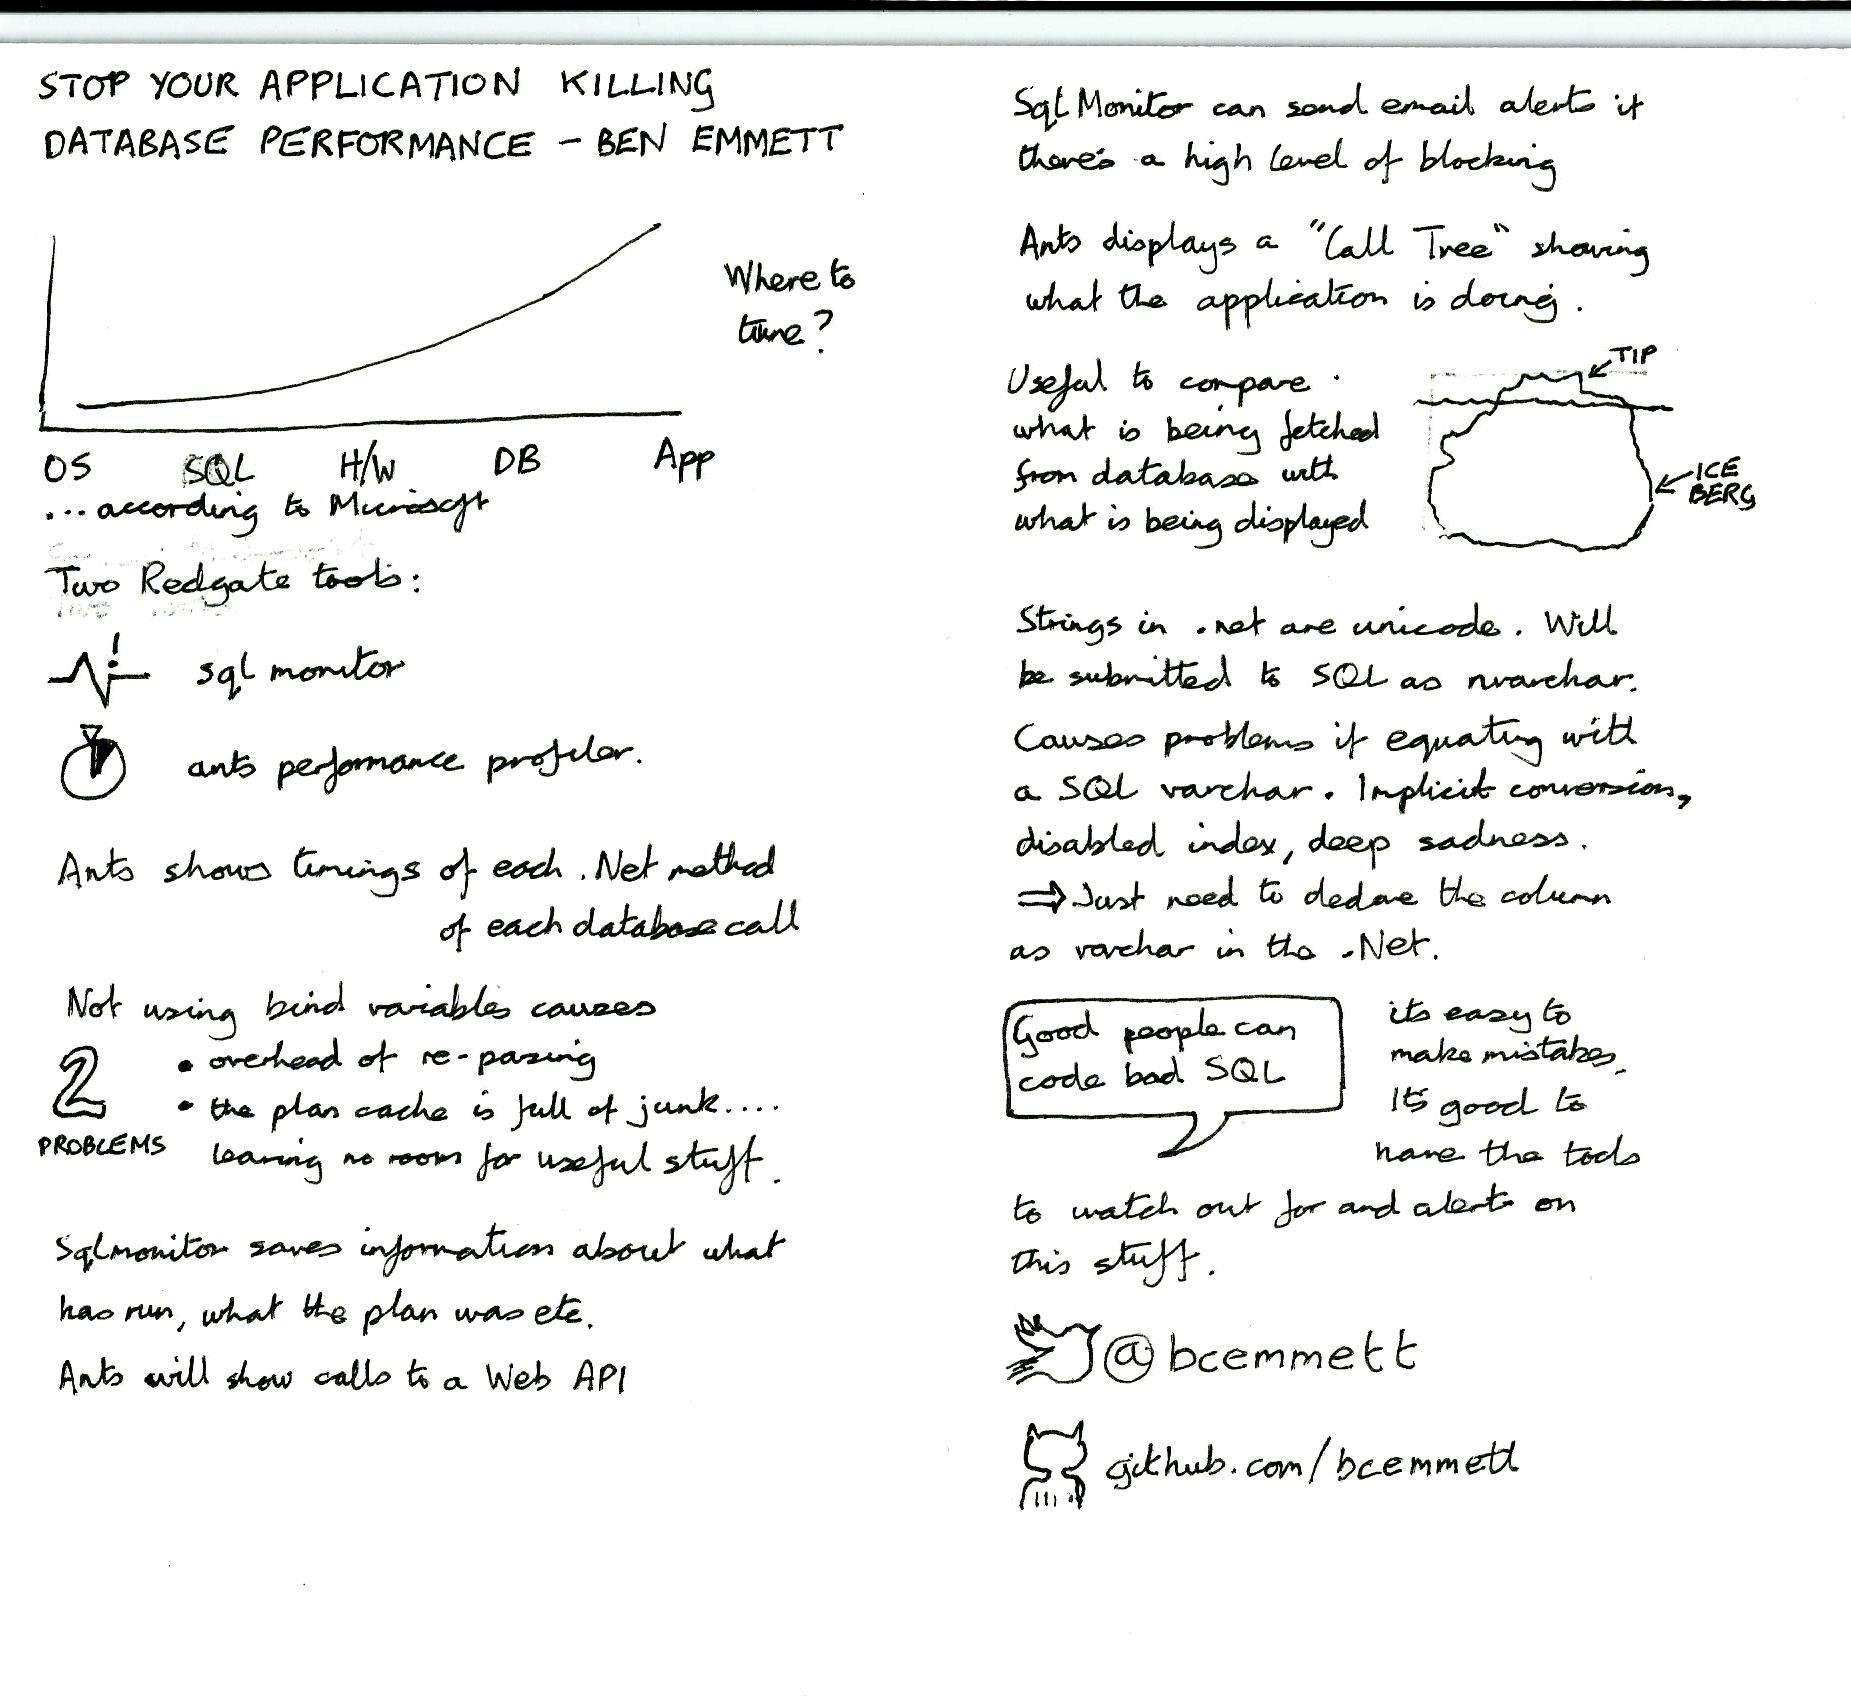 STOP YOUR APPLICATION KILLING
DATABASE PERFORMANCE – BEN EMMETT
Where to
tune?
OS SQL H/W DB App
...according to Microsoft
Two Redgate tools:
sql monitor
ants performance profiler.
Ants shows timings of each .Net method
of each database call
Not using bind variables causes
2
PROBLEMS
• overhead of re-parsing
• the plan cache is full of junk....
leaving no room for useful stuff.
Sqlmonitor saves information about what
has run, what the plan was etc.
Ants will show calls to a Web API
Sql Monitor can send email alerts if
there's a high level of blocking
Ants displays a "Call Tree" showing
what the application is doing.
Useful to compare
what is being fetched
from database with
what is being displayed
TIP
ICE
BERG
Strings in .net are unicode. Will
be submitted to SQL as nvarchar.
Causes problems if equating with
a SQL varchar. Implicit conversion,
disabled index, deep sadness.
⇒ Just need to declare the column
as varchar in the .Net.
Good people can
code bad SQL
its easy to
make mistakes.
It's good to
have the tools
to watch out for and alert on
this stuff.
@bcemmett
github.com/bcemmett